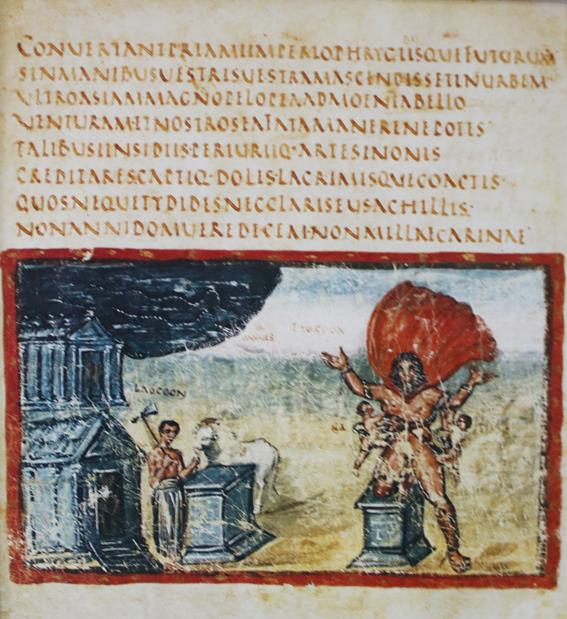 CONVERTANTPRIAMIIMPERIOPHRYGIISQUEFUTURUM
SINMANIBUSUESTRISUESTRAMASCENDISSETINURBEM
ULTROASIAMMAGNOPELOPEAADMOENIABELLO
VENTURAMETNOSTROSEAFATAMANERENEPOTES
TALIBUSINSIDIISPERIURIIQ·ARTESINONIS
CREDITARESCAPTIQ·DOLISLACRIMISQUECOACTIS
QUOSNEQUETYDIDESNECCLARISEUSACHILLIS
NONANNIDOMUEREDECEM·NONMILLAECARINAE
ANGUES LAOCOON
LAOCOON
NA